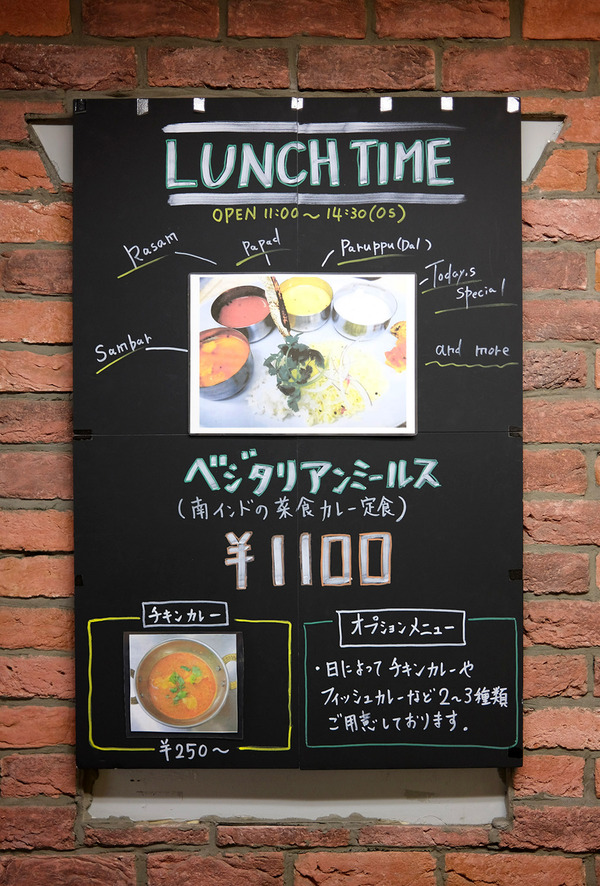 LUNCH TIME
OPEN 11:00～14:30(OS)
Rasam
Papad
Paruppu(Dal)
Today,s
Special
Sambar
and more
ベジタリアンミールス
(南インドの菜食カレー定食)
¥1100
チキンカレー
¥250～
オプションメニュー
・日によって チキンカレーや
フィッシュカレーなど 2～3種類
ご用意しております。